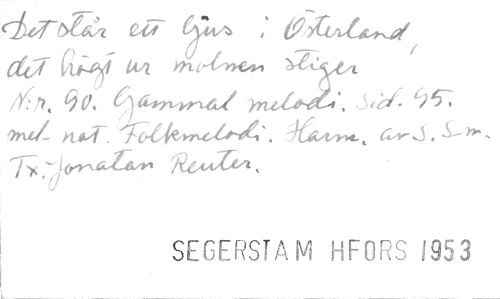 Det står ett ljus i Österland,
det högt ur molnen stiger
N:r. 90. Gammal melodi. Sid. 95.
mel. not. Folkmelodi. Harm. av S. S-m.
Tx. Jonatan Reuter.
SEGERSTAM HFORS 1953